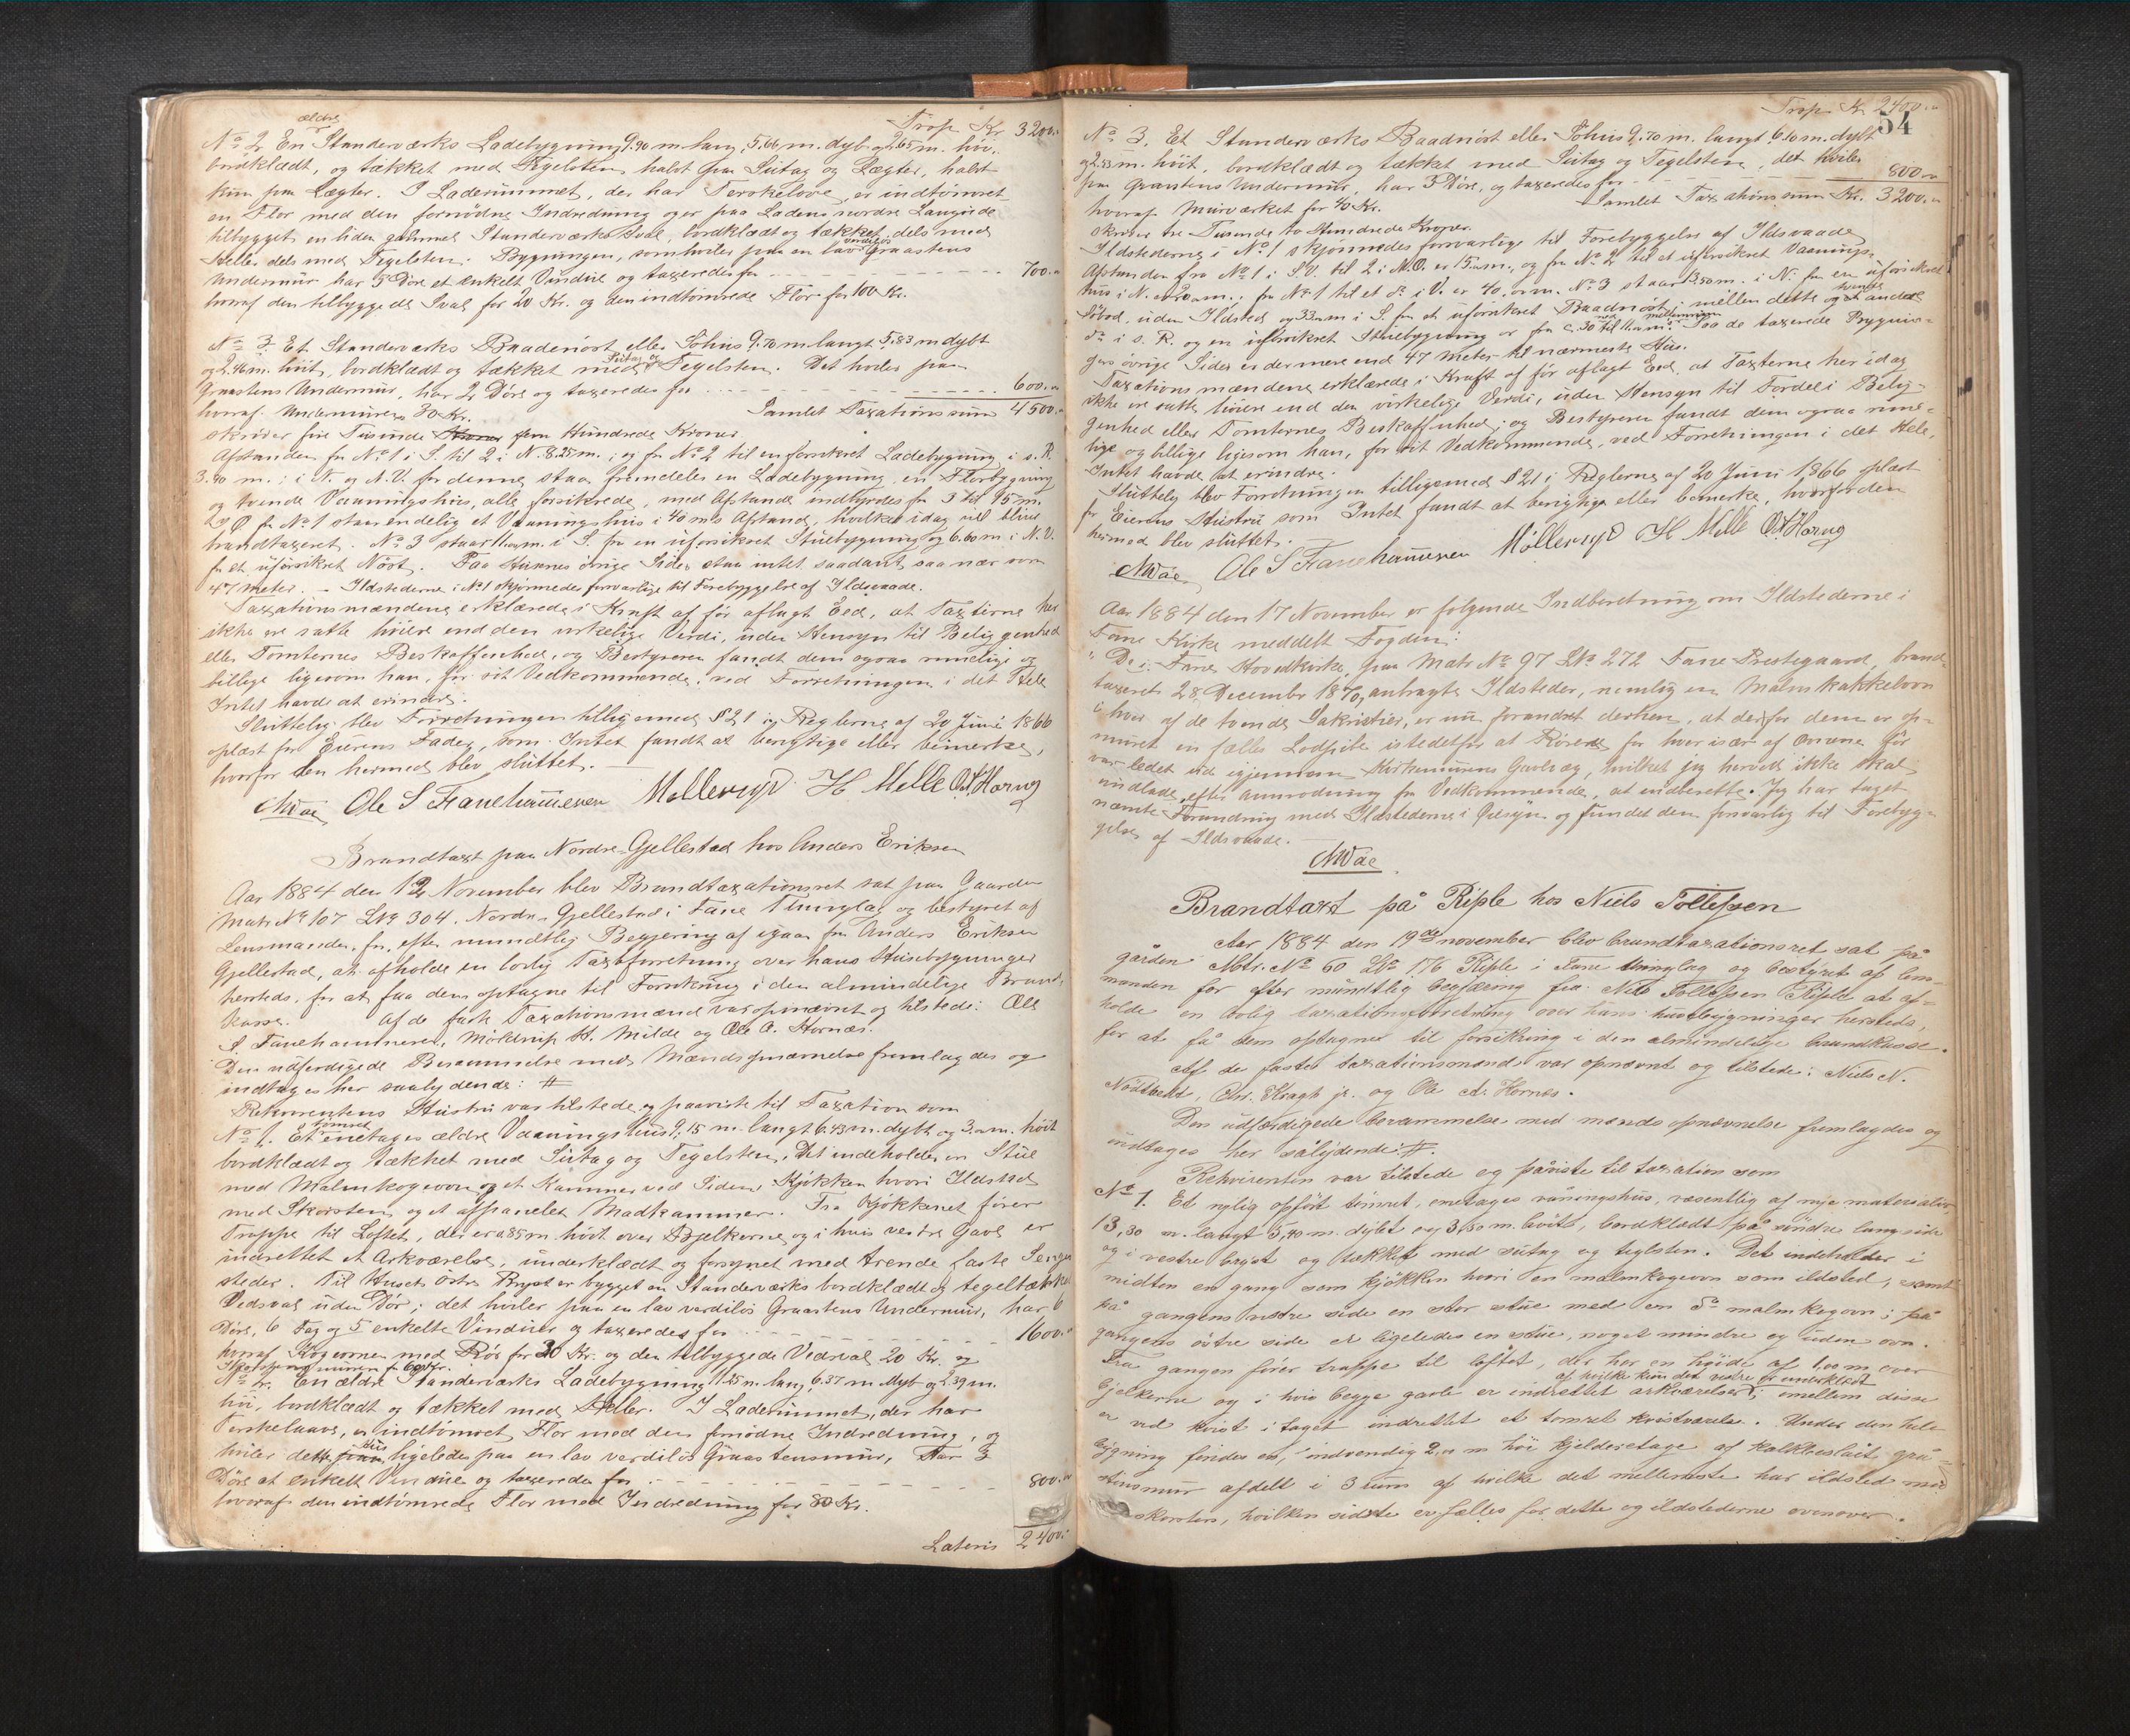 Trsp. Kr. 3200.
ældre
No 2. En Standeværks Ladebygning 9.90 m. lang, 5.66 m. dyb og 2.65 m. høi,
bordklædt, og tækket med Tegelsten, halvt paa Sutag og Lægter, halvt
kun paa Lægter. I Laderummet, der har Terskelove, er indtømret
en Flor med den fornødne Indredning og er paa Ladens nordre Langside
tilbygget en liden gammel Standeværks Sval, bordklædt og tækket dels med
Heller dels med Tegelsten. Bygningen, som hviler paa en lav værdiløs Graastens
Undermur har 5 Døre et enkelt Vindue og taxeredes for 700.
hvoraf den tilbyggede Sval for 20 Kr. og den indtømrede Flor for 100 Kr.
No 3. Et Standeværks Baadenøst eller Søhus 9.70 m langt 5.83 m dybt
og 2.46 m. høit, bordklædt og tækket med Sutag og Tegelsten. Det hviler paa
Graastens Undermur, har 2 Døre og taxeredes for 600.
hvoraf Undermuren 30 Kr. Samlet Taxationssum 4500.
skriver fire Tusinde Kroner fem Hundrede Kroner
Afstanden fra No 1 i S. til 2 i N. 8.25 m.; og fra No 2 til en forsikret Ladebygning i s. R.
3.90 m.; i N. og N.V. for denne staa fremdeles en Ladebygning, en Florbygning
og tvende Vaaningshus, alle forsikrede, med Afstande indbyrdes fra 3 til 95 m.
I Ø. fra No 1 staar endelig et Vaaningshus i 40 ms Afstand, hvilket idag vil blive
brandtaxeret. No 3 staar m. i S. fra en uforsikret Stuebygning og 6.60 m i N.V.
fra et uforsikret Nøst. Paa Husenes øvrige Sider staa intet saadant saa nær som
47 meter. – Ildstederne i No 1 skjønnedes forsvarlige til Forebyggelse af Ildsvaade.
Taxationsmændene erklærede i Kraft af før aflagt Eed, at Taxterne her
ikke ere satte høiere end den virkelige Verdi, uden Hensyn til Beliggenhed
eller Tomternes Beskaffenhed, og Bestyreren fandt dem ogsaa rimelige og
billige ligesom han, for sit Vedkommende, ved Forretningen i det Hele
Intet havde at erindre.
Sluttelig blev Forretningen tilligemed § 21 i Reglerne af 20 Juni 1866
oplæst for Eierens Fader, som Intet fandt at berigtige eller bemerke,
hvorfor den hermed blev sluttet. –
Ole S Fanehammeren Møllerup H Melle O. A. Hornes
Brandtaxt paa Nordre Gjellestad hos Anders Eriksen
Aar 1884 den 12 November blev Brandtaxationsret sat paa Gaarden
Matr No 107 LNo 304. Nordre Gjellestad i Fane Thinglag og bestyret af
Lensmanden for, efter mundtlig Begjering af igaar fra Anders Eriksen
Gjellestad, at afholde en lovlig Taxtforretning over hans Husebygninger
hersteds, for at faa dem optagne til Forsikring i den almindelige Brand-
kasse. Af de faste Taxationsmænd var opnævnt og tilstede: Ole
S Fanehammeren, Møldrup H. Milde og Ole A. Hornæs.
Den udferdigede Berammelse med Mændsopnævnelse fremlagdes og
indtages her saalydende: #
Rekvirentens Hustru var tilstede og paaviste til Taxation som
No 1. Et tømret enetages ældre Vaaningshus 9.15 m. langt 6.43 m. dybt og 3 m. høit
bordklædt og tækket med Sutag og Tegelsten. Det indeholder en Stue
med Malmkogeovn og et Kammer ved Siden, Kjøkken hvori Ildsted
med Skorsten og et afpanelet Madkammer. Fra Kjøkkenet fører
Trappe til Loftet, der er 0.85 m. høit over Bjelkerne og i hvis vestre Gavl er
indrettet et Arkværelse, underklædt og forsynet med trende faste Senge-
steder. Til Husets østre Bryst er bygget en Standeværks bordklædt og tegeltækket
Vedsval uden Dør; det hviler paa en lav værdiløs Graastens Undermur, har 6
Døre, 6 Fag og 5 enkelte Vinduer og taxeredes for 1600.
hvoraf Kogeovnen med Rør for 30 Kr. og den tilbyggede Vedsval 20 Kr. og
Skorstensmuren for 60 Kr.
No 2. En ældre Standeværks Ladebygning 11.25 m. lang, 6.37 m dyb og 2.39 m.
høi, bordklædt og tækket med Heller. I Laderummet, der har
Terskelaave, er indtømret Flor med den fornødne Indredning, og
hviler dette Hus ligeledes paa en lav værdiløs Graastensmur, Har 3
Døre et enkelt Vindue og taxeredes for 800.
hvoraf den indtømrede Flor med Indredning for 80 Kr.
Lateris 2400.
54
Trsp. Kr. 2400.
No 3. Et Standeværks Baadnøst eller Søhus 9.70 m. langt 6.10 m. dybt
og 2.53 m. høit, bordklædt og tækket med Sutag og Tegelsten, det hviler
paa Graastens Undermur, har 3 Døre, og taxeredes for 800.
hvoraf Murværket for 40 Kr. Samlet Taxationssum Kr. 3200.
skriver tre Tusinde to Hundrede Kroner.
Ildstederne i No 1 skjønnedes forsvarlige til Forebyggelse af Ildsvaade
Afstanden fra No 1 i S.V. til 2 i N.O. er 15 m., og fra No 2 til et uforsikret Vaanings-
hus i N. er 20 m., fra No 1 til et do i V. er 40 m. No 3 staar 13.50 m. i N. fra en uforsikret
Sjøbod, uden Ildsted og 33 m i S. fra et uforsikret Baadnøst; mellem dette og tvende andre
do i s. R. og en uforsikret Stuebygning er fra c. 30 til 11 m. mellemrum. Paa de taxerede Bygnin-
gers øvrige Sider er der mere end 47 meter til nærmeste Hus.
Taxationsmændene erklærede i Kraft af før aflagt Eed, at Taxterne her idag
ikke ere satte høiere end den virkelige Verdi, uden Hensyn til Fordele i Belig-
genhed eller Tomternes Beskaffenhed; og Bestyreren fandt dem ogsaa rime-
lige og billige ligesom han, for sit Vedkommende, ved Forretningen i det Hele,
Intet havde at erindre.
Sluttelig blev Forretningen tilligemed § 21 i Reglerne af 20 Juni 1866 oplæst
for Eierens Hustru som Intet fandt at berigtige eller bemerke, hvorfor den
hermed blev sluttet.
Ole S Fanehammeren Møllerup H Melle O. A. Hornes
Aar 1884 den 17 November er følgende Indberetning om Ildstederne i
Fane Kirke meddelt Fogden:
"De i Fane Hovedkirke, paa Matr No 97 LNo 272 Fane Prestegaard, brand-
taxeret 28 December 1870, anbragte Ildsteder, nemlig en Malmkakkelovn
i hver af de tvende Sakristier, er nu forandret derhen, at der for dem er op-
muret en fælles Lodpibe istedetfor at Rørene for hver især af Ovnene før
var ledet ud igjennem Kirkemurens Gavlvæg, hvilket jeg herved ikke skal
undlade, efter Anmodning fra Vedkommende, at indberette. Jeg har taget
nævnte Forandring med Ildstederne i Øiesyn og fundet den forsvarlig til Forebyg-
gelse af Ildsvaade.
Brandtaxt på Riple hos Niels Tollefsen
Aar 1884 den 19de november blev brandtaxationsret sat på
gården Matr. No 60 LNo 176 Riple i Fane thinglag og bestyret af lens-
manden for efter mundtlig begjæring fra Niels Tollefsen Riple at af-
holde en lovlig taxationsforretning over hans husebygninger hersteds,
for at få dem optagne til forsikring i den almindelige brandkasse.
Af de faste taxationsmænd var opnævnt og tilstede: Niels N.
Nødtvedt, Chr. Kragh jr. og Ole A. Hornes.
Den udfærdigede berammelse med mændsopnævnelse fremlagdes og
indtages her sålydende: #.
Rekvirenten var tilstede og påviste til taxation som
No 1. Et nylig opført tømret, enetages våningshus, væsentlig af nye materialier,
13,30 m. langt 5,40 m. dybt og 3,50 m. høit, bordklædt på søndre langside
og i vestre bryst og tækket med sutag og teglsten. Det indeholder i
midten en gang som kjøkken hvori en malmkogeovn som ildsted, samt
på gangens vestre side en stor stue med en do malmkogeovn; på
gangens østre side er ligeledes en stue, noget mindre og uden ovn.
Fra gangen fører trappe til loftet, der har en høide af 1,00 m over
bjelkerne og i hvis begge gavle er indrettet arkværelser, af hvilke kun det vestre er underklædt; imellem disse
er ved kvist i taget indrettet et tømret kvistværelse. Under den hele
bygning findes en, indvendig 2,0 m høi kjelderetage af kalkbeslaat grå-
stensmur afdelt i 3 rum af hvilke det mellemste har ildsted med
skorsten, hvilken sidste er fælles for dette og ildstederne ovenover.